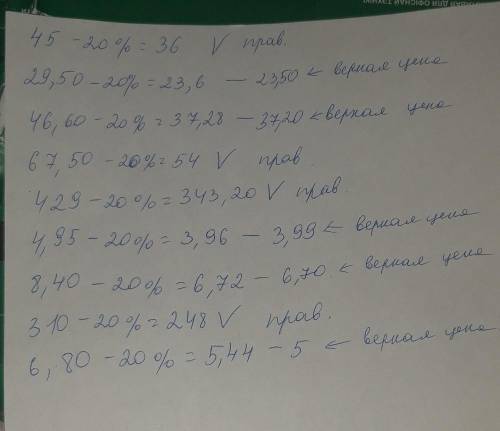 ДЛЯ ОФІСНАЙ ТЭХНІКІ
45 - 20% = 36 V прав.
29,50 - 20% = 23,6 — 23,50 ← верная цена
46,60 - 20% = 37,28 — 37,20 ← верная цена
67,50 - 20% = 54 V прав.
429 - 20% = 343,20 V прав.
4,95 - 20% = 3,96 — 3,99 ← верная цена
8,40 - 20% = 6,72 — 6,70 ← верная цена
310 - 20% = 248 V прав.
6,80 - 20% = 5,44 - 5 ← верная цена